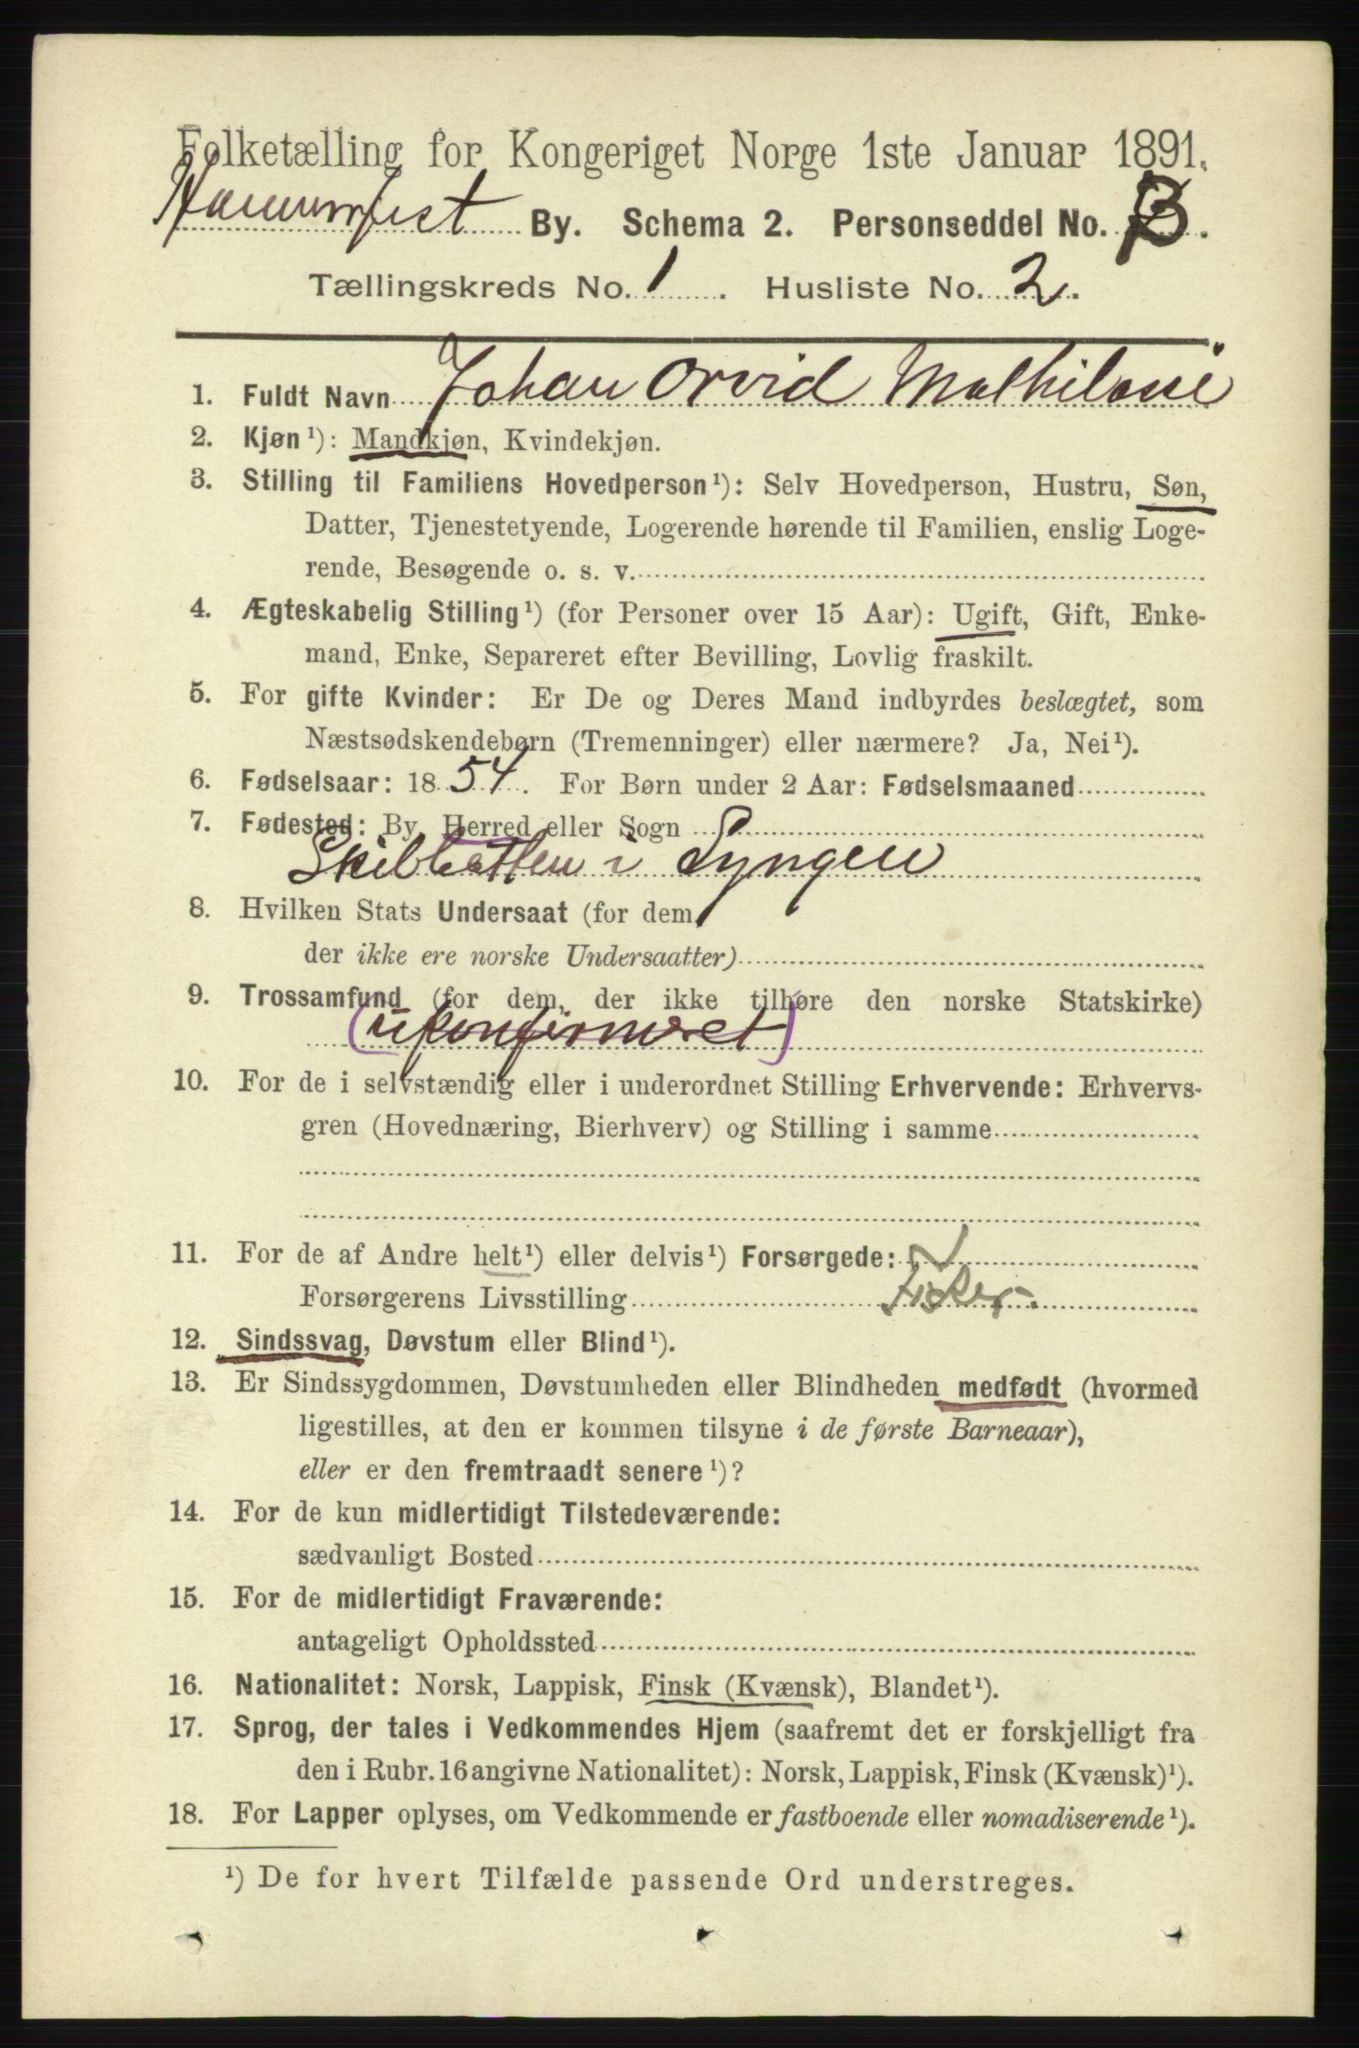 Folketælling for Kongeriget Norge 1ste Januar 1891.
Hammerfest By. Schema 2. Personseddel No. B.
Tællingskreds No. 1. Husliste No. 2.
1. Fuldt Navn Johan Orvid Mathilassi
2. Kjøn¹): Mandkjøn, Kvindekjøn.
3. Stilling til Familiens Hovedperson¹): Selv Hovedperson, Hustru, Søn,
Datter, Tjenestetyende, Logerende hørende til Familien, enslig Loge-
rende, Besøgende o. s. v.
4. Ægteskabelig Stilling¹) (for Personer over 15 Aar): Ugift, Gift, Enke-
mand, Enke, Separeret efter Bevilling, Lovlig fraskilt.
5. For gifte Kvinder: Er De og Deres Mand indbyrdes beslægtet, som
Næstsødskendebørn (Tremenninger) eller nærmere? Ja, Nei¹).
6. Fødselsaar: 1854. For Børn under 2 Aar: Fødselsmaaned
7. Fødested: By, Herred eller Sogn
Skibbotten i Lyngen
8. Hvilken Stats Undersaat (for dem,
der ikke ere norske Undersaatter)
9. Trossamfund (for dem, der ikke tilhøre den norske Statskirke)
(ukonfirmeret)
10. For de i selvstændig eller i underordnet Stilling Erhvervende: Erhvervs-
gren (Hovednæring, Bierhverv) og Stilling i samme
11. For de af Andre helt¹) eller delvis¹) Forsørgede:
Forsørgerens Livsstilling Fisker
12. Sindssvag, Døvstum eller Blind¹).
13. Er Sindssygdommen, Døvstumheden eller Blindheden medfødt (hvormed
ligestilles, at den er kommen tilsyne i de første Barneaar),
eller er den fremtraadt senere¹)?
14. For de kun midlertidigt Tilstedeværende:
sædvanligt Bosted
15. For de midlertidigt Fraværende:
antageligt Opholdssted
16. Nationalitet: Norsk, Lappisk, Finsk (Kvænsk), Blandet¹).
17. Sprog, der tales i Vedkommendes Hjem (saafremt det er forskjelligt fra
den i Rubr. 16 angivne Nationalitet): Norsk, Lappisk, Finsk (Kvænsk)¹).
18. For Lapper oplyses, om Vedkommende er fastboende eller nomadiserende¹).
¹) De for hvert Tilfælde passende Ord understreges.